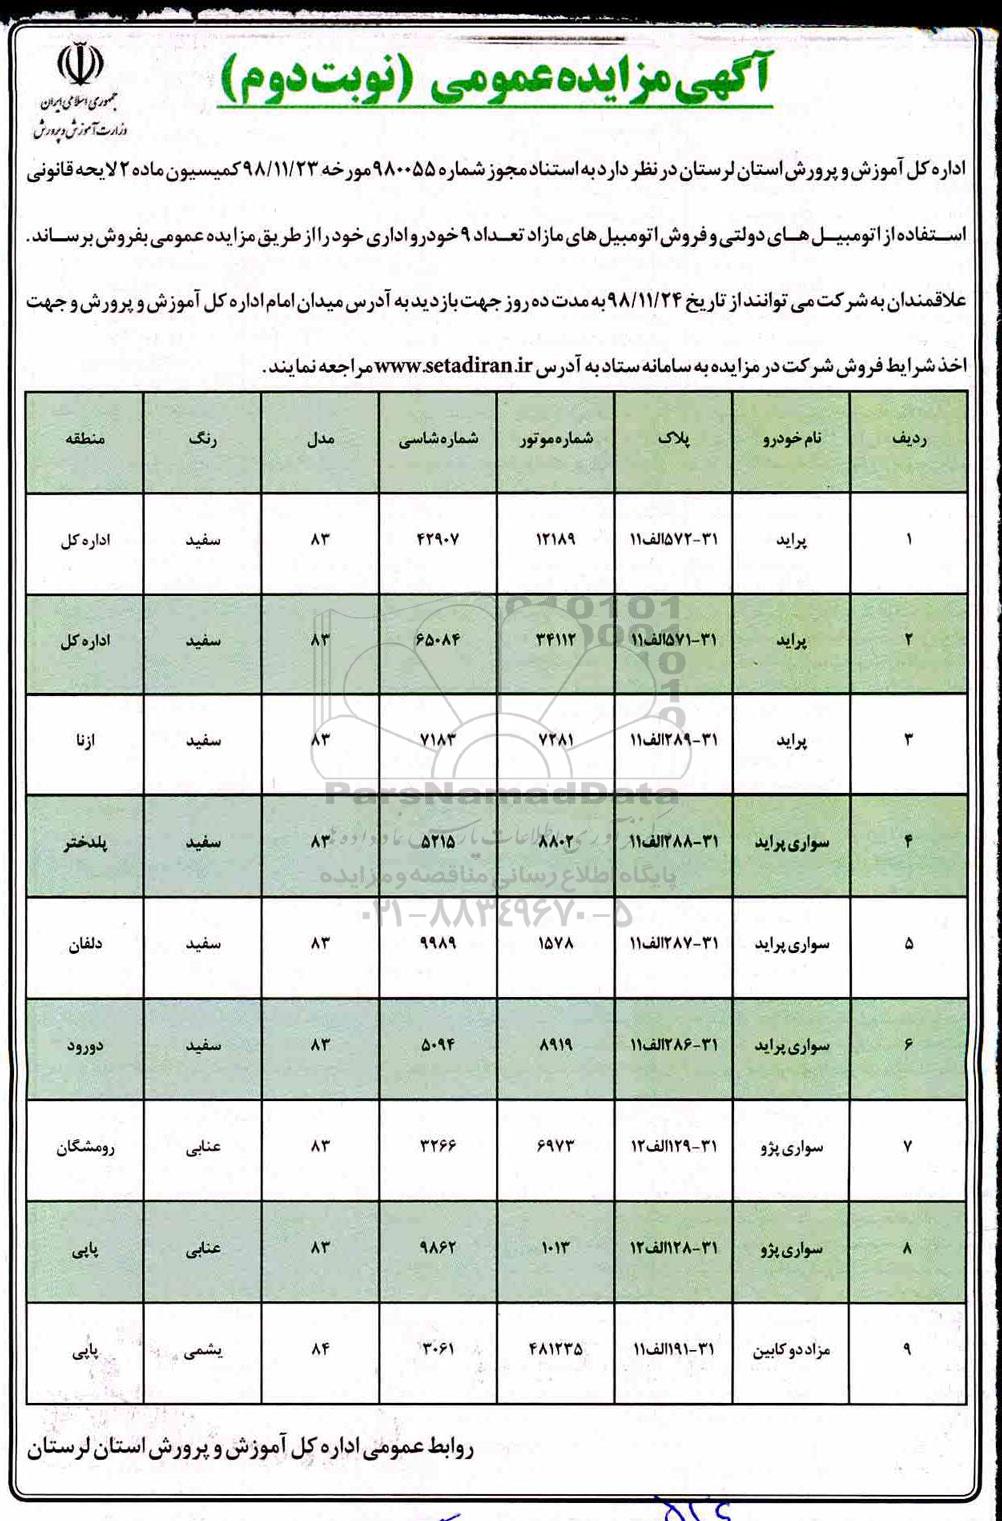 آگهی مزایده عمومی (نوبت دوم)
جمهوری اسلامی ایران
وزارت آموزش و پرورش
اداره کل آموزش و پرورش استان لرستان در نظر دارد به استناد مجوز شماره ۹۸۰۰۵۵ مورخه ۹۸/۱۱/۲۳ کمیسیون ماده ۲ لایحه قانونی
استفاده از اتومبیل های دولتی و فروش اتومبیل های مازاد تعداد ۹ خودرو اداری خود را از طریق مزایده عمومی بفروش برساند.
علاقمندان به شرکت می توانند از تاریخ ۹۸/۱۱/۲۴ به مدت ده روز جهت بازدید به آدرس میدان امام اداره کل آموزش و پرورش و جهت
اخذ شرایط فروش شرکت در مزایده به سامانه ستاد به آدرس www.setadiran.ir مراجعه نمایند.
ردیف نام خودرو پلاک شماره موتور شماره شاسی مدل رنگ منطقه
۱ پراید ۳۱-۵۷۲الف۱۱ ۱۲۱۸۹ ۴۲۹۰۷ ۸۳ سفید اداره کل
۲ پراید ۳۱-۵۷۱الف۱۱ ۳۴۱۱۲ ۶۵۰۸۴ ۸۳ سفید اداره کل
۳ پراید ۳۱-۲۸۹الف۱۱ ۷۲۸۱ ۷۱۸۳ ۸۳ سفید ازنا
۴ سواری پراید ۳۱-۲۸۸الف۱۱ ۸۸۰۲ ۵۲۱۵ ۸۳ سفید پلدختر
۵ سواری پراید ۳۱-۲۸۷الف۱۱ ۱۵۷۸ ۹۹۸۹ ۸۳ سفید دلفان
۶ سواری پراید ۳۱-۲۸۶الف۱۱ ۸۹۱۹ ۵۰۹۴ ۸۳ سفید دورود
۷ سواری پژو ۳۱-۱۲۹الف۱۲ ۶۹۷۳ ۳۲۶۶ ۸۳ عنابی رومشگان
۸ سواری پژو ۳۱-۱۲۸الف۱۲ ۱۰۱۳ ۹۸۶۲ ۸۳ عنابی پاپی
۹ مزاد دو کابین ۳۱-۱۹۱الف۱۱ ۴۸۱۲۳۵ ۳۰۶۱ ۸۴ یشمی پاپی
ParsNamadData
پایگاه اطلاع رسانی مناقصه و مزایده
۰۲۱-۸۸۳۴۹۶۷۰-۵
روابط عمومی اداره کل آموزش و پرورش استان لرستان